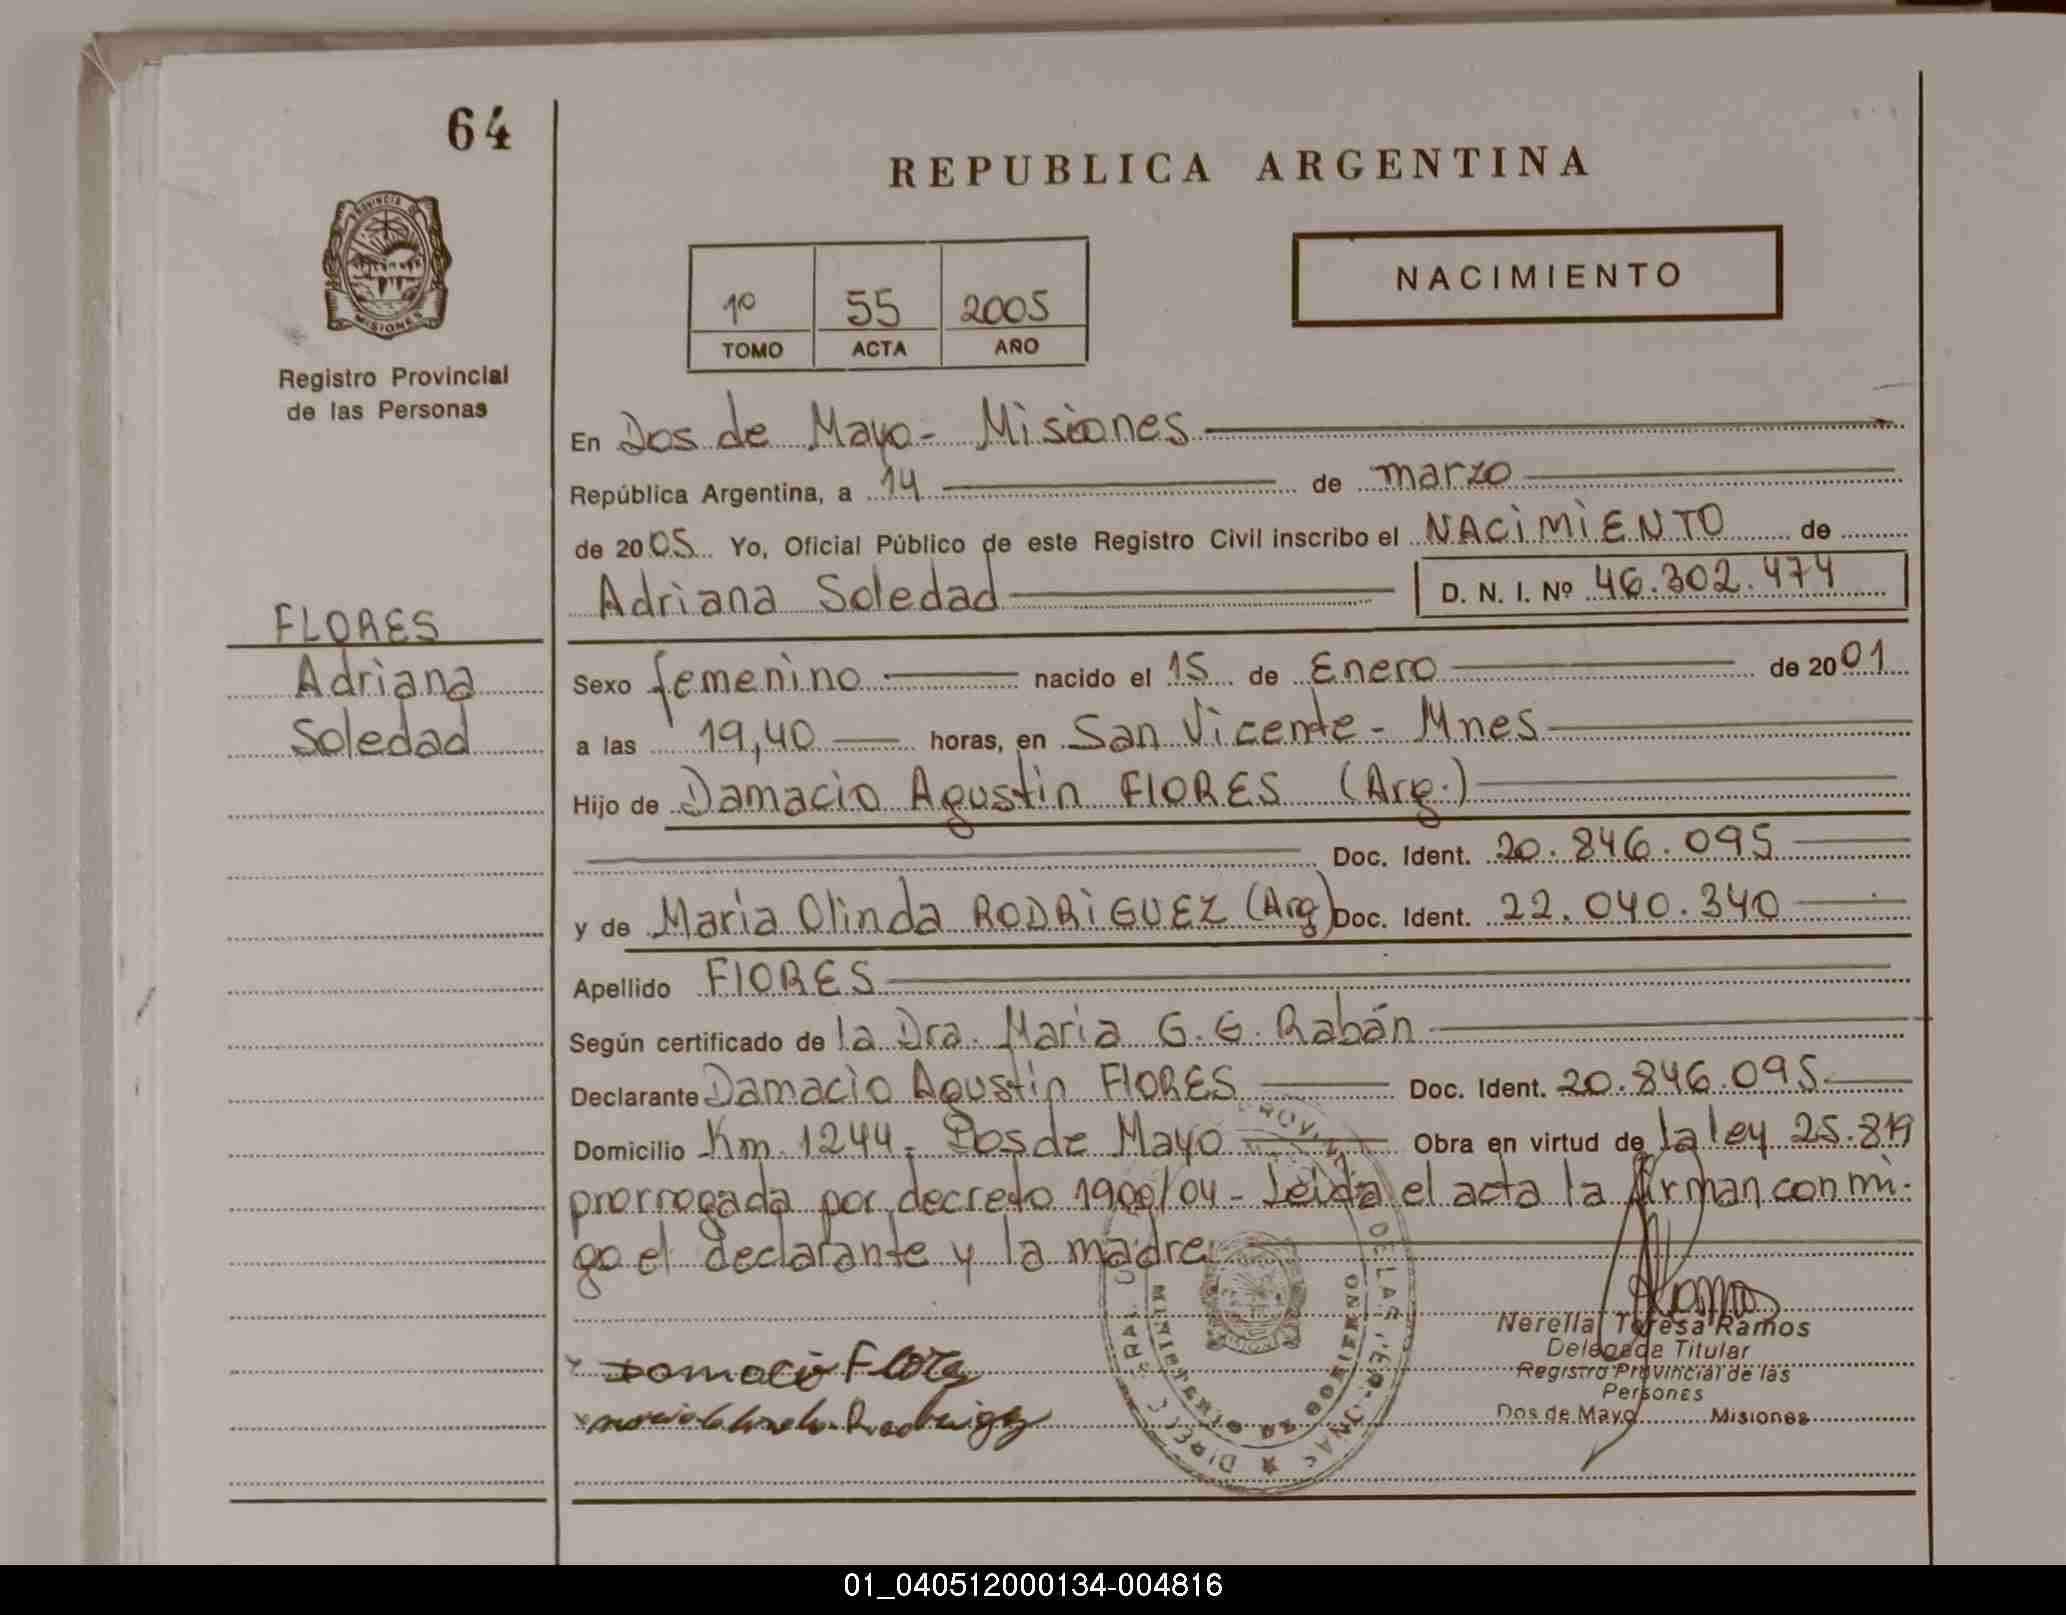 64
REPUBLICA ARGENTINA
PROVINCIA DE
MISIONES
1º 55 2005
TOMO ACTA AÑO
NACIMIENTO
Registro Provincial
de las Personas
En Dos de Mayo - Misiones
República Argentina, a 14 de marzo
de 2005 Yo, Oficial Público de este Registro Civil inscribo el NACIMIENTO de
Adriana Soledad D. N. I. Nº 46.302.474
FLORES
Adriana
Soledad
Sexo femenino nacido el 15 de Enero de 2001
a las 19,40 horas, en San Vicente - Mnes
Hijo de Damacio Agustin FlORES (Arg.)
Doc. Ident. 20.846.095
y de Maria Olinda RODRiGUEZ (Arg) Doc. Ident. 22.040.340
Apellido FlORES
Según certificado de la Dra. Maria G. G. Rabán
Declarante Damacio Agustin FlORES Doc. Ident. 20.846.095
Domicilio Km. 1244 - Dos de Mayo Obra en virtud de la ley 25.819
prorrogada por decreto 1900/04 - Leida el acta la firman conmi-
go el declarante y la madre
Nerella Teresa Ramos
Delegada Titular
Registro Provincial de las
Persones
Dos de Mayo Misiones
Flores
Rodrigez
01_040512000134-004816